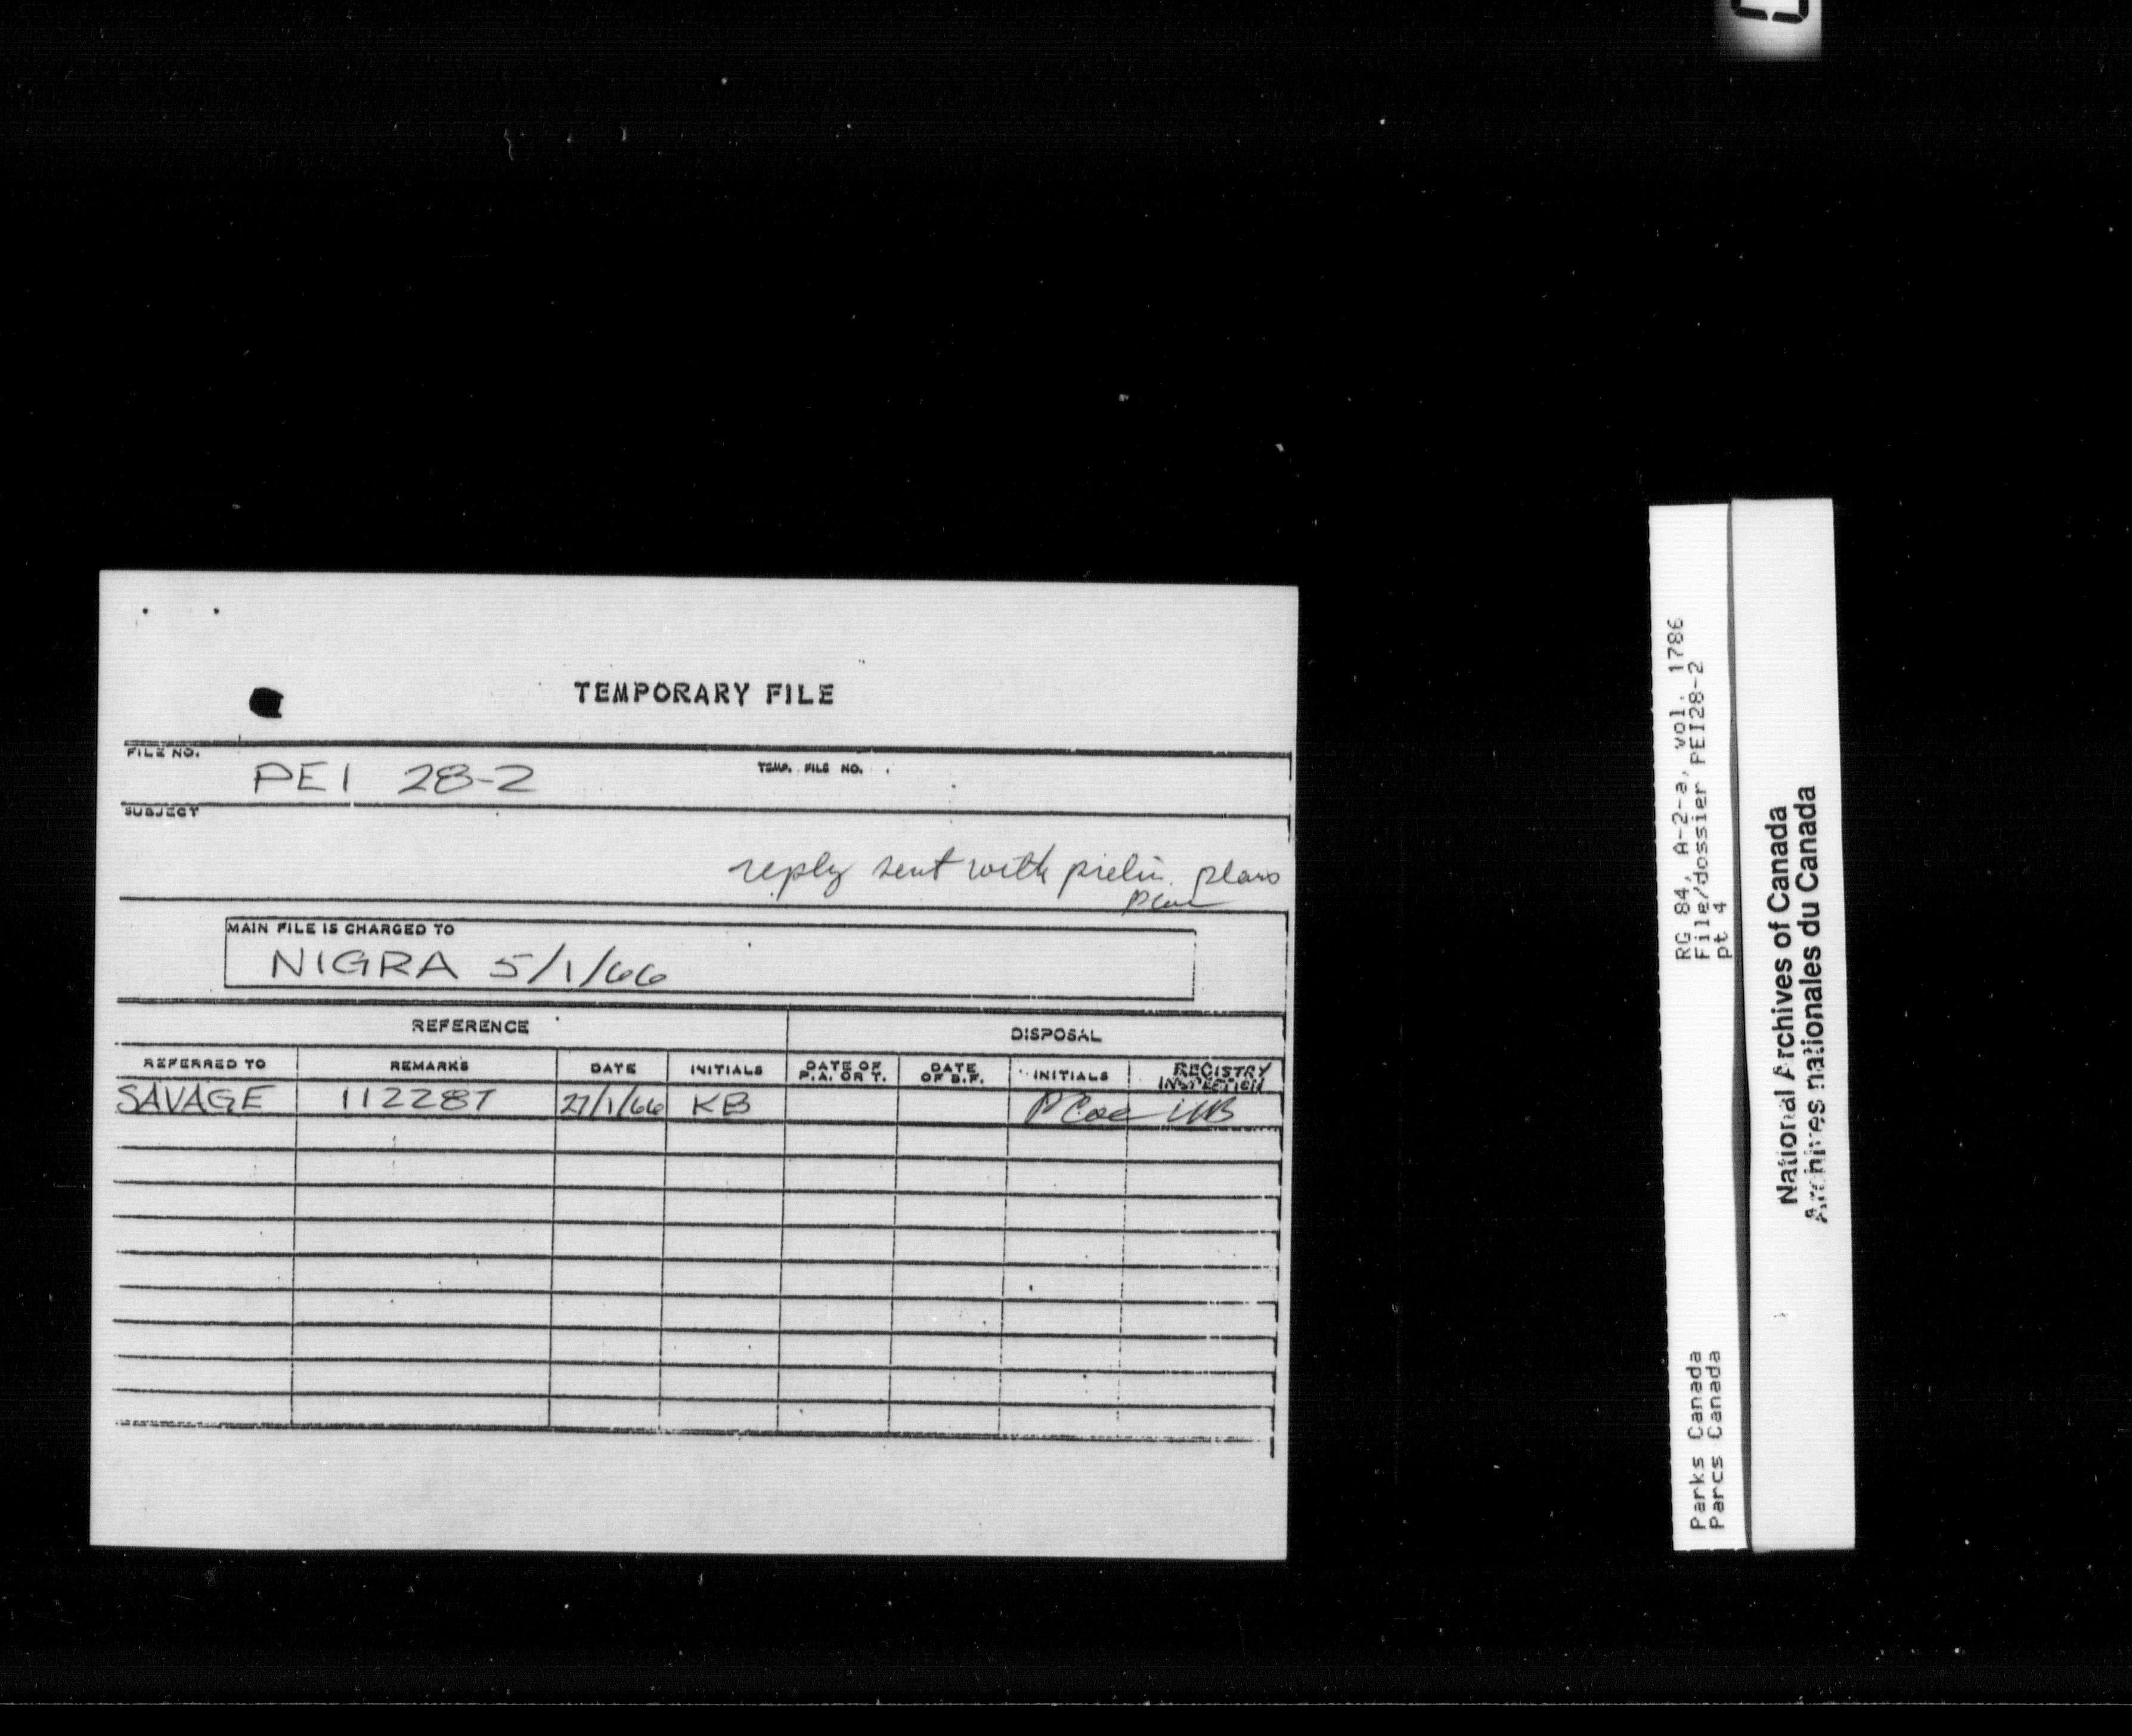 TEMPORARY FILE
FILE NO.
PEI 28-2
TEMP. FILE NO.
SUBJECT
reply sent with prelim. plans
MAIN FILE IS CHARGED TO
NIGRA 5/1/66
REFERENCE DISPOSAL
REFERRED TO REMARKS DATE INITIALS DATE OF P.A. OR T. DATE OF B.F. INITIALS REGISTRY INSPECTION
SAVAGE 112287 27/1/66 KB PCoe
RG 84, A-2-a, vol. 1786
File/dossier PEI28-2
pt 4
Parks Canada
Parcs Canada
National Archives of Canada
Archives nationales du Canada